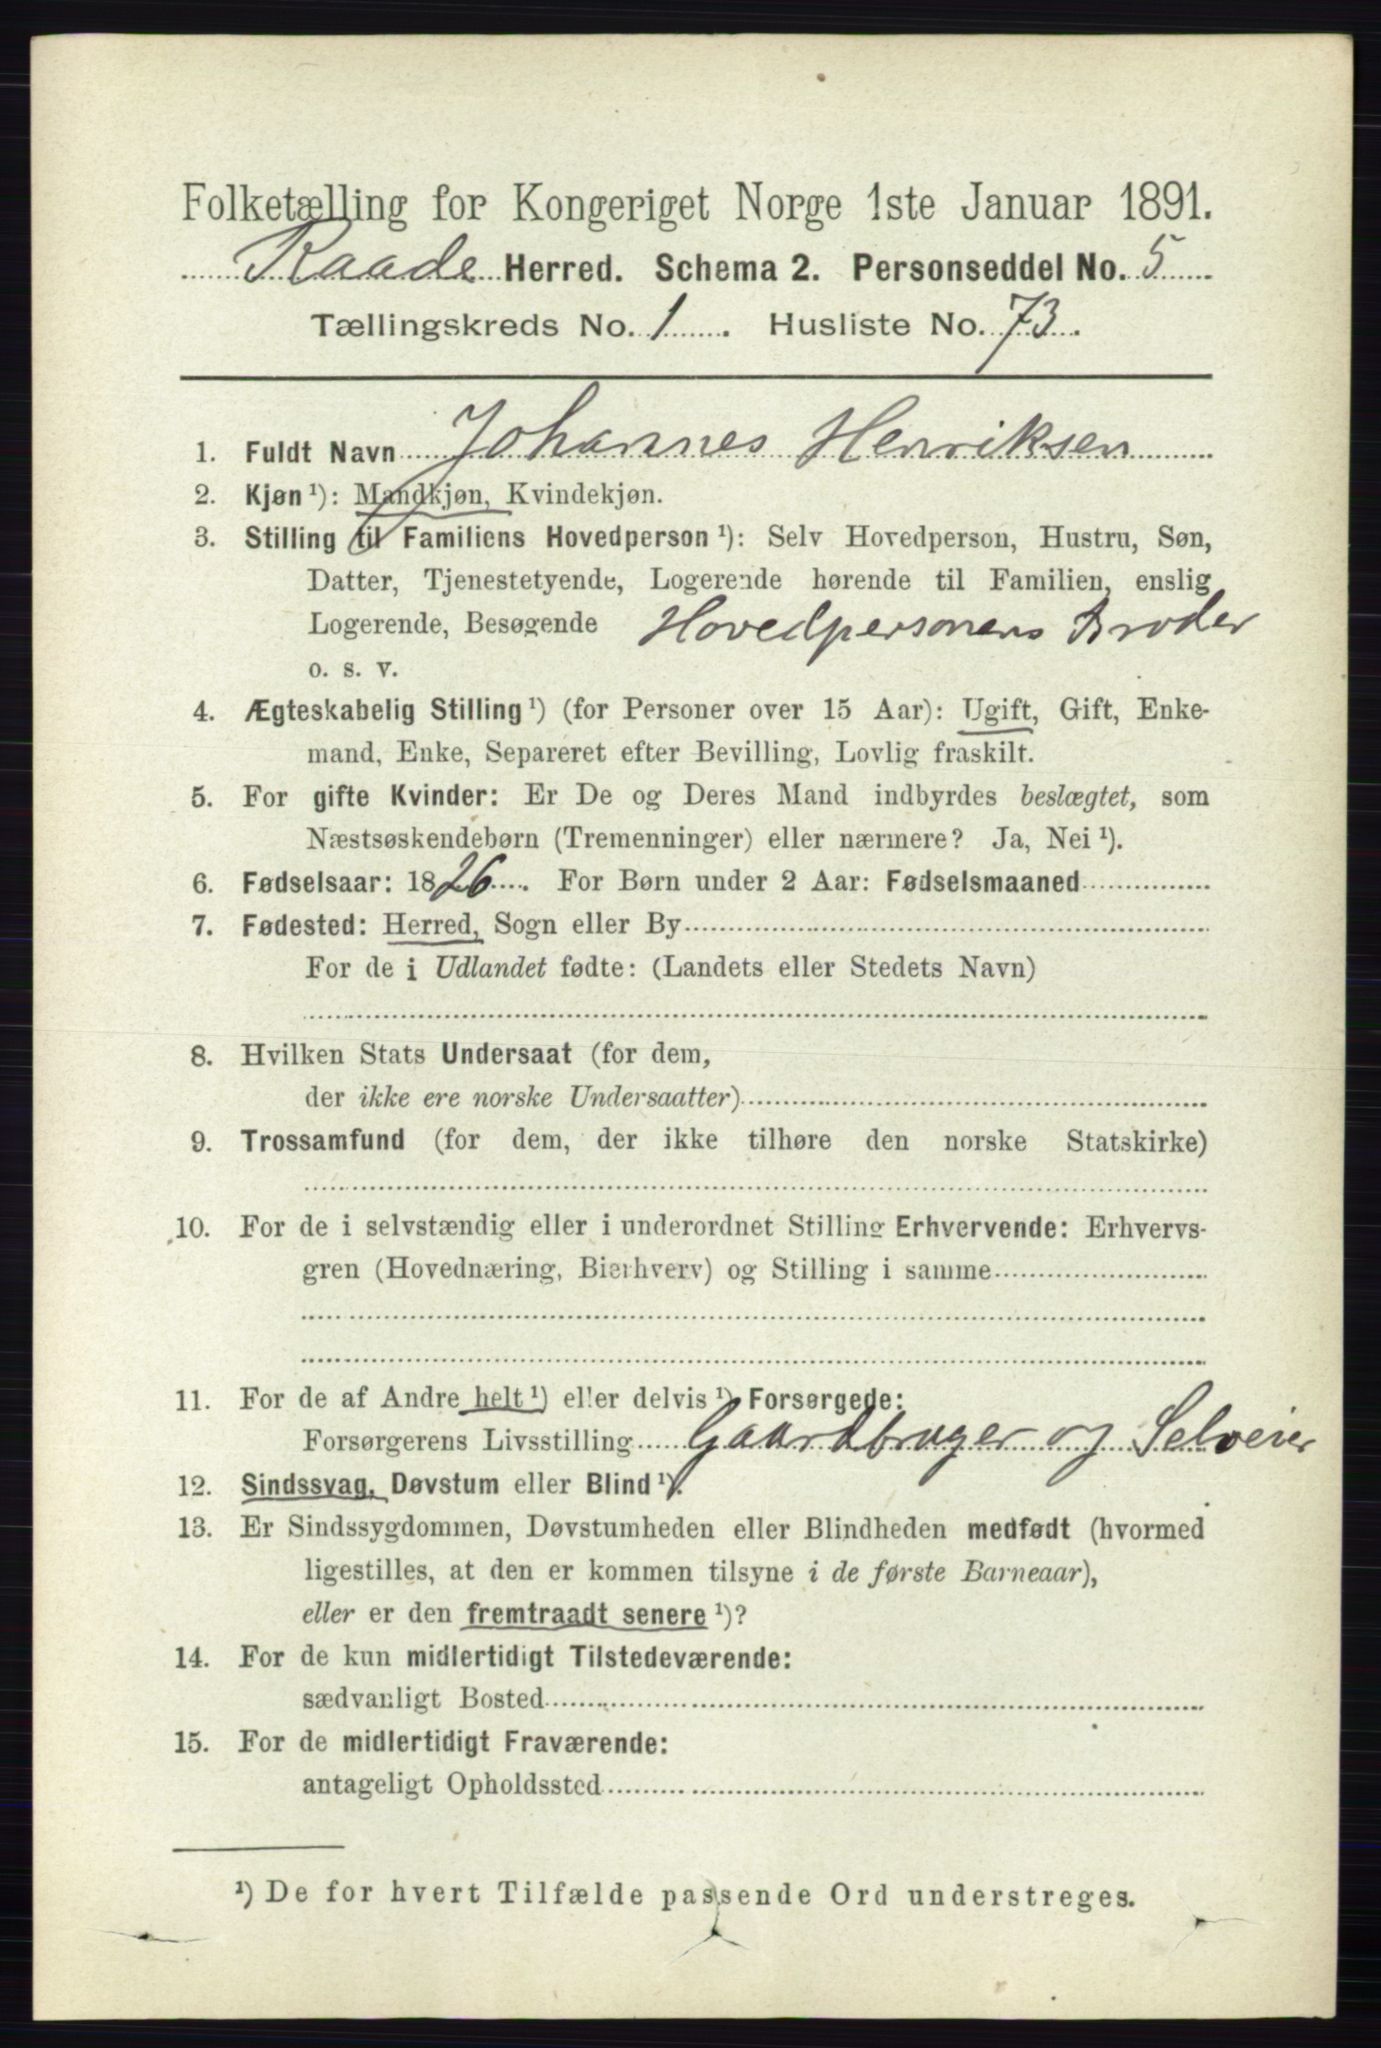 Folketælling for Kongeriget Norge 1ste Januar 1891.
Raade Herred. Schema 2. Personseddel No. 5
Tællingskreds No. 1. Husliste No. 73.
1. Fuldt Navn Johannes Henriksen
2. Kjøn ¹): Mandkjøn, Kvindekjøn.
3. Stilling til Familiens Hovedperson ¹): Selv Hovedperson, Hustru, Søn,
Datter, Tjenestetyende, Logerende hørende til Familien, enslig
Logerende, Besøgende Hovedpersonens Broder
o. s. v.
4. Ægteskabelig Stilling ¹) (for Personer over 15 Aar): Ugift, Gift, Enke-
mand, Enke, Separeret efter Bevilling, Lovlig fraskilt.
5. For gifte Kvinder: Er De og Deres Mand indbyrdes beslægtet, som
Næstsøskendebørn (Tremenninger) eller nærmere? Ja, Nei ¹).
6. Fødselsaar: 1826. For Børn under 2 Aar: Fødselsmaaned
7. Fødested: Herred, Sogn eller By
For de i Udlandet fødte: (Landets eller Stedets Navn)
8. Hvilken Stats Undersaat (for dem,
der ikke ere norske Undersaatter)
9. Trossamfund (for dem, der ikke tilhøre den norske Statskirke)
10. For de i selvstændig eller i underordnet Stilling Erhvervende: Erhvervs-
gren (Hovednæring, Bierhverv) og Stilling i samme
11. For de af Andre helt ¹) eller delvis ¹) Forsørgede:
Forsørgerens Livsstilling Gaardbruger og Selveier
12. Sindssvag, Døvstum eller Blind ¹).
13. Er Sindssygdommen, Døvstumheden eller Blindheden medfødt (hvormed
ligestilles, at den er kommen tilsyne i de første Barneaar),
eller er den fremtraadt senere ¹)?
14. For de kun midlertidigt Tilstedeværende:
sædvanligt Bosted
15. For de midlertidigt Fraværende:
antageligt Opholdssted
¹) De for hvert Tilfælde passende Ord understreges.